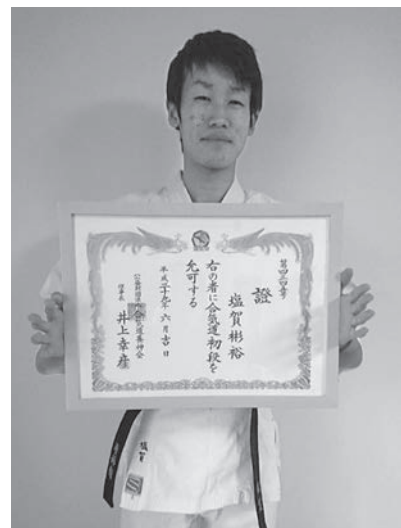 第四三四三号
證
塩賀彬裕
右の者に合氣道初段を
允可する
平成二十九年六月吉日
公益財団法人合気道養神会
理事長 井上幸彦
塩賀